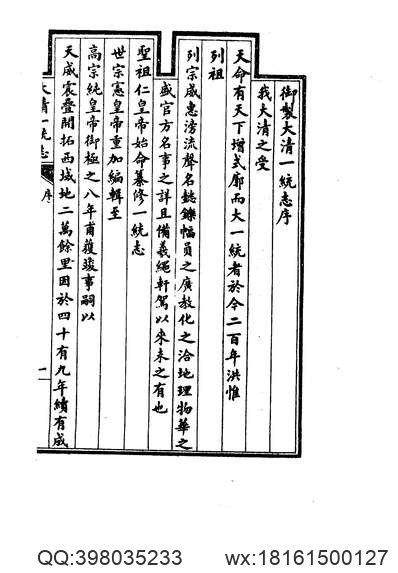 御製大清一統志序
我大清之受
天命有天下增式廓而大一統者於今二百年洪惟
列祖
列宗威惠滂流聲名懿鑠幅員之廣教化之洽地理物華之
盛官方名事之詳且備羲繩軒駕以來未之有也
聖祖仁皇帝始命纂修一統志
世宗憲皇帝重加編輯至
高宗純皇帝御極之八年甫獲竣事嗣以
天威震疊開拓西域地二萬餘里因於四十有九年續有成
大清一統志
序
一
QQ:398035233
wx:18161500127